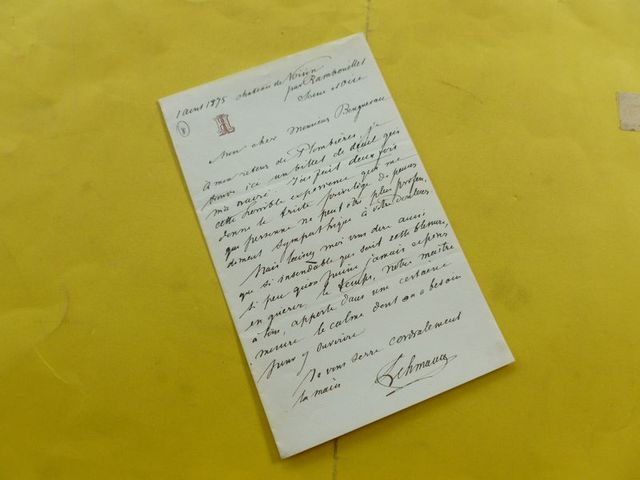 1 aout 1875 chateau de Voisin
par Rambouillet
Seine et Oise
Mon cher Monsieur Bouguereau
A mon retour de Plombières, je
trouve ici un billet de deuil qui
m'a navré. J'ai fait deux fois
cette horrible expérience qui me
donne le triste privilège de penser
que personne ne peut être plus profon
dément sympathique à votre douleur.
Mais laissez moi vous dire aussi
que si insondable que soit cette blessure,
si peu qu'on puisse jamais espérer
en guérir, le temps, notre maître
à tous, apporte dans une certaine
mesure le calme dont on a besoin
pour y survivre
Je vous serre cordialement
la main Lehmann